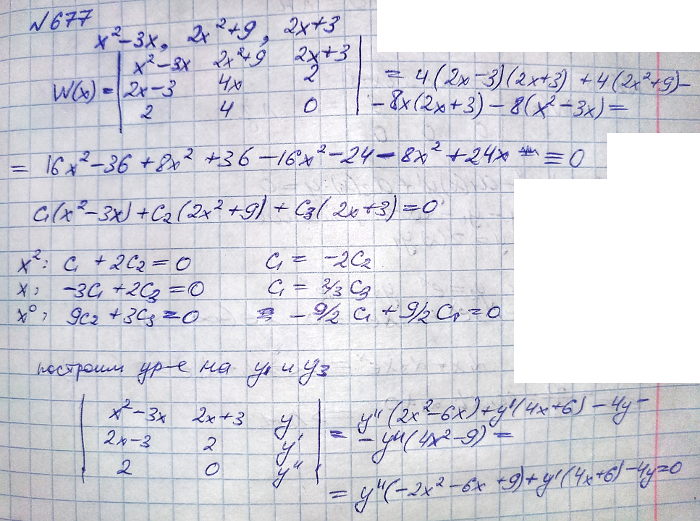 №677
x²-3x, 2x²+9, 2x+3
W(x) = | x²-3x 2x²+9 2x+3 |
| 2x-3 4x 2 | = 4(2x-3)(2x+3) + 4(2x²+9) -
| 2 4 0 | - 8x(2x+3) - 8(x²-3x) =
= 16x²-36+8x²+36-16x²-24-8x²+24x ≡ 0
C₁(x²-3x)+C₂(2x²+9)+C₃(2x+3)=0
x²: C₁+2C₂=0 C₁ = -2C₂
x: -3C₁+2C₃=0 C₁ = 2/3 C₃
x⁰: 9C₂+3C₃=0 -9/2 C₁ + 9/2 C₁ = 0
построим ур-е на y₁ и y₃
| x²-3x 2x+3 y | = y''(2x²-6x)+y'(4x+6)-4y-
| 2x-3 2 y' | - y''(4x²-9) =
| 2 0 y'' |
= y''(-2x²-6x+9)+y'(4x+6)-4y=0